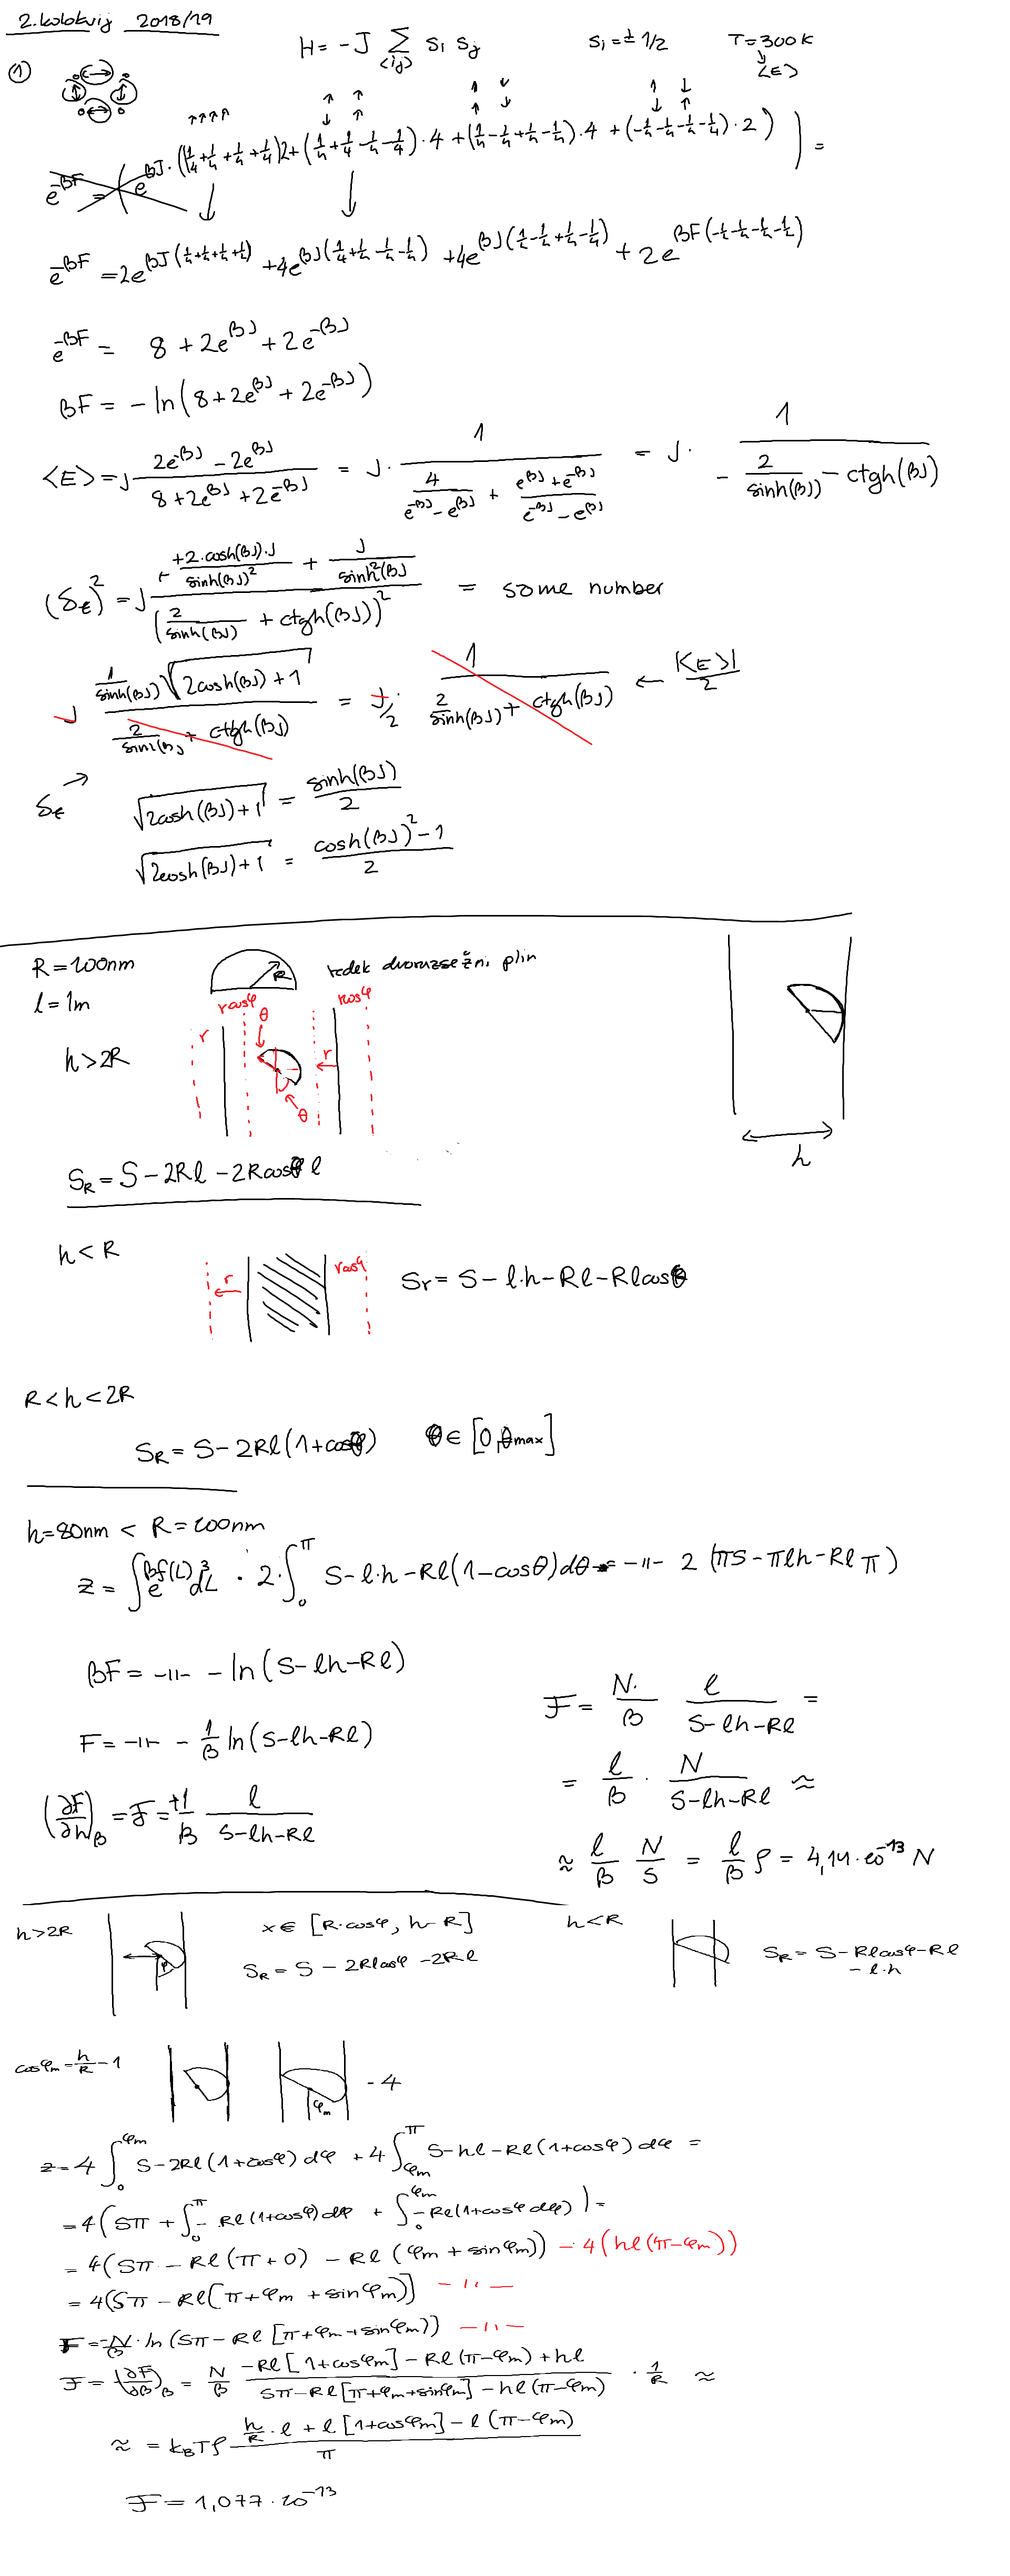 2. kolokvij 2018/19
H = -J Σ_<ij> s_i s_j    s_i = ± 1/2    T = 300K
<E>
①
↑↑↑↑
e^{-βF} = (e^{βJ·((1/4+1/4+1/4+1/4)2+(1/4+1/4-1/4-1/4)·4+(1/4-1/4+1/4-1/4)·4+(-1/4-1/4-1/4-1/4)·2)}) =
e^{-βF} = 2e^{βJ(1/4+1/4+1/4+1/4)} + 4e^{βJ(1/4+1/4-1/4-1/4)} + 4e^{βJ(1/4-1/4+1/4-1/4)} + 2e^{βF(-1/4-1/4-1/4-1/4)}
e^{-βF} = 8 + 2e^{βJ} + 2e^{-βJ}
βF = -ln(8+2e^{βJ} + 2e^{-βJ})
<E> = J (2e^{-βJ} - 2e^{βJ})/(8+2e^{βJ}+2e^{-βJ}) = J · 1/(4/(e^{-βJ}-e^{βJ}) + (e^{βJ}+e^{-βJ})/(e^{-βJ}-e^{βJ})) = J · 1/(-2/sinh(βJ) - ctgh(βJ))
(δ_E)² = J (+2·cosh(βJ)·J/sinh(βJ)² + J/sinh²(βJ))/(2/sinh(βJ) + ctgh(βJ))² = some number
J (1/sinh(βJ) √(2cosh(βJ)+1))/(2/sinh(βJ) + ctgh(βJ)) = J/2 · 1/(2/sinh(βJ) + ctgh(βJ)) ← |<E>|/2
δ_E → √(2cosh(βJ)+1) = sinh(βJ)/2
√(2cosh(βJ)+1) = (cosh(βJ)²-1)/2
R = 100nm    R    redek dvorazsežni plin
l = 1m
rcosφ    rcosφ
r    θ    r
h > 2R
θ
h
S_R = S - 2Rl - 2Rcosθ l
h < R
r    rcosφ    S_r = S - l·h - Rl - Rlcosθ
R < h < 2R
S_R = S - 2Rl(1+cosθ)    θ ∈ [0,θmax]
h = 80nm < R = 100nm
z = ∫e^{βf(L)}d³L · 2·∫_0^π S-l·h-Rl(1-cosθ)dθ = -11- 2 (πS-πlh-Rlπ)
βF = -11- - ln(S-lh-Rl)
F = -11- - 1/β ln(S-lh-Rl)
(∂F/∂h)_β = F = +1/β l/(S-lh-Rl)
F = N·/β l/(S-lh-Rl) =
= l/β · N/(S-lh-Rl) ≈
≈ l/β N/S = l/β ρ = 4,14·10^{-13} N
h > 2R    x ∈ [R·cosφ, h-R]    h < R
S_R = S - 2Rlcosφ - 2Rl    S_R = S-Rlcosφ-Rl
- l·h
cosφ_m = h/R - 1    φ_m    - 4
z = 4 ∫_0^{φm} S-2Rl(1+cosφ)dφ + 4 ∫_{φm}^π S-hl-Rl(1+cosφ)dφ =
= 4(Sπ + ∫_0^π -Rl(1+cosφ)dφ + ∫_0^{φm} -Rl(1+cosφdφ)) =
= 4(Sπ - Rl(π+0) - Rl(φ_m + sinφ_m)) - 4(hl(π-φ_m))
= 4(Sπ - Rl[π+φ_m+sinφ_m]) -11-
F = -N/β · ln(Sπ-Rl[π+φ_m+sinφ_m]) -11-
F = (∂F/∂β)_β = N/β (-Rl[1+cosφ_m]-Rl(π-φ_m)+hl)/(Sπ-Rl[π+φ_m+sinφ_m]-hl(π-φ_m)) · 1/R ≈
≈ = k_BTρ (h/R·l+l[1+cosφ_m]-l(π-φ_m))/π
F = 1,077·10^{-13}